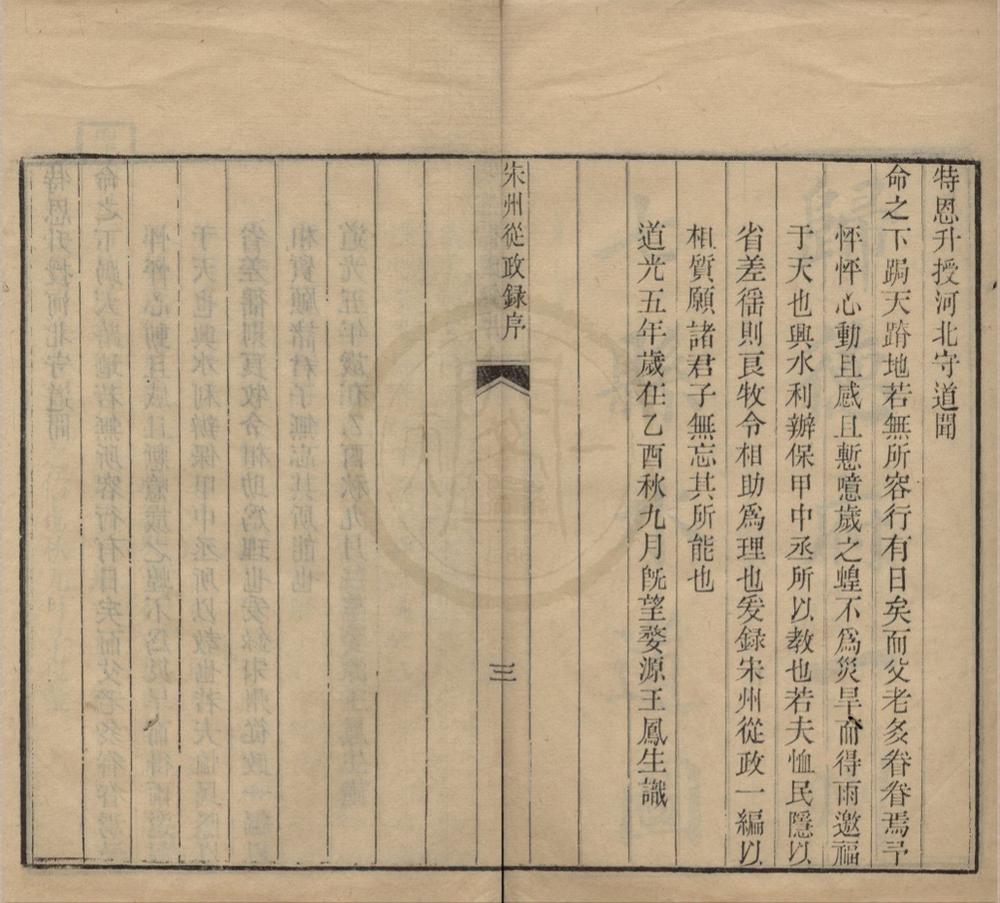 特恩升授河北守道聞
命之下跼天蹐地若無所容行有日矣而父老多眷眷焉予
怦怦心動且感且慙噫歲之蝗不為災旱而得雨邀福
于天也興水利辦保甲中丞所以教也若夫恤民隱以
省差徭則良牧令相助為理也爰録宋州從政一編以
相質願諸君子無忘其所能也
道光五年歲在乙酉秋九月旣望婺源王鳳生識
宋州從政録序
三